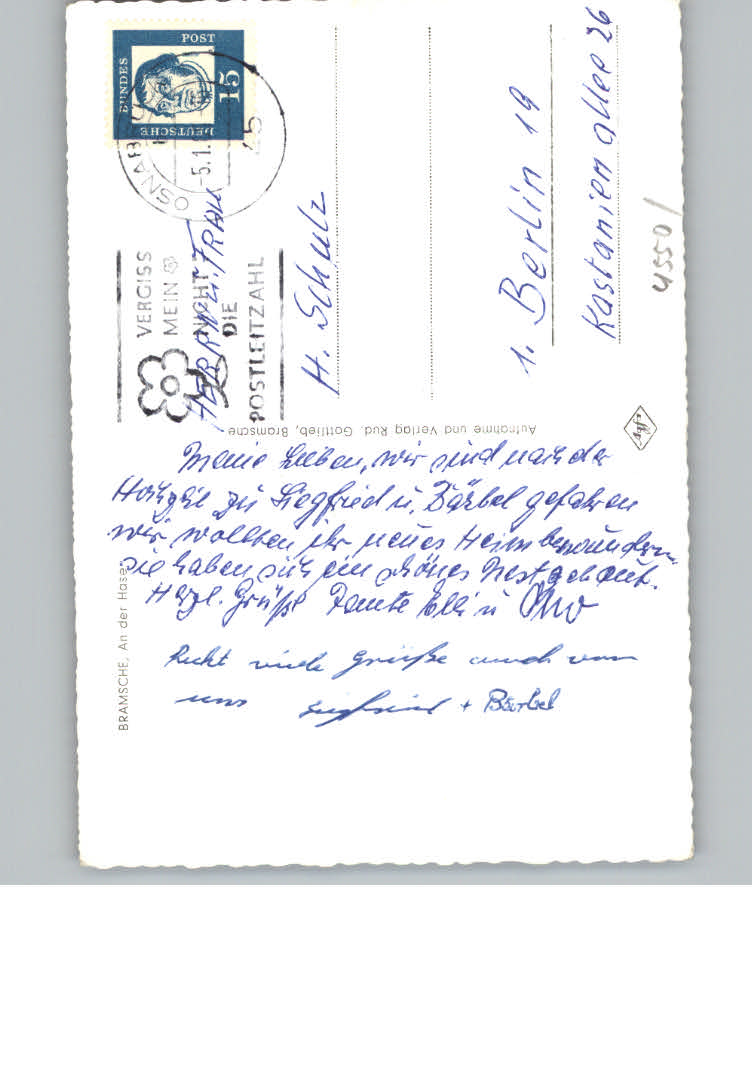 DEUTSCHE
BUNDES
POST
15
OSNABRÜ
-5.1.
45
VERGISS
MEIN
NICHT
DIE
POSTLEITZAHL
HERRN u. FRAU
H. Schulz
1. Berlin 19
Kastanien allee 26
4550/
Aufnahme und Verlag Rud. Gottlieb, Bramsche
BRAMSCHE, An der Hase
Meine Lieben, wir sind nach der
Hochzeit zu Siegfried u. Bärbel gefahren
wir wollten ihr neues Heim bewundern
sie haben sich ein schönes Nest gebaut.
Herzl. Grüße Tante Elli u Otto
Recht viele Grüße auch von
uns Siegfried + Bärbel